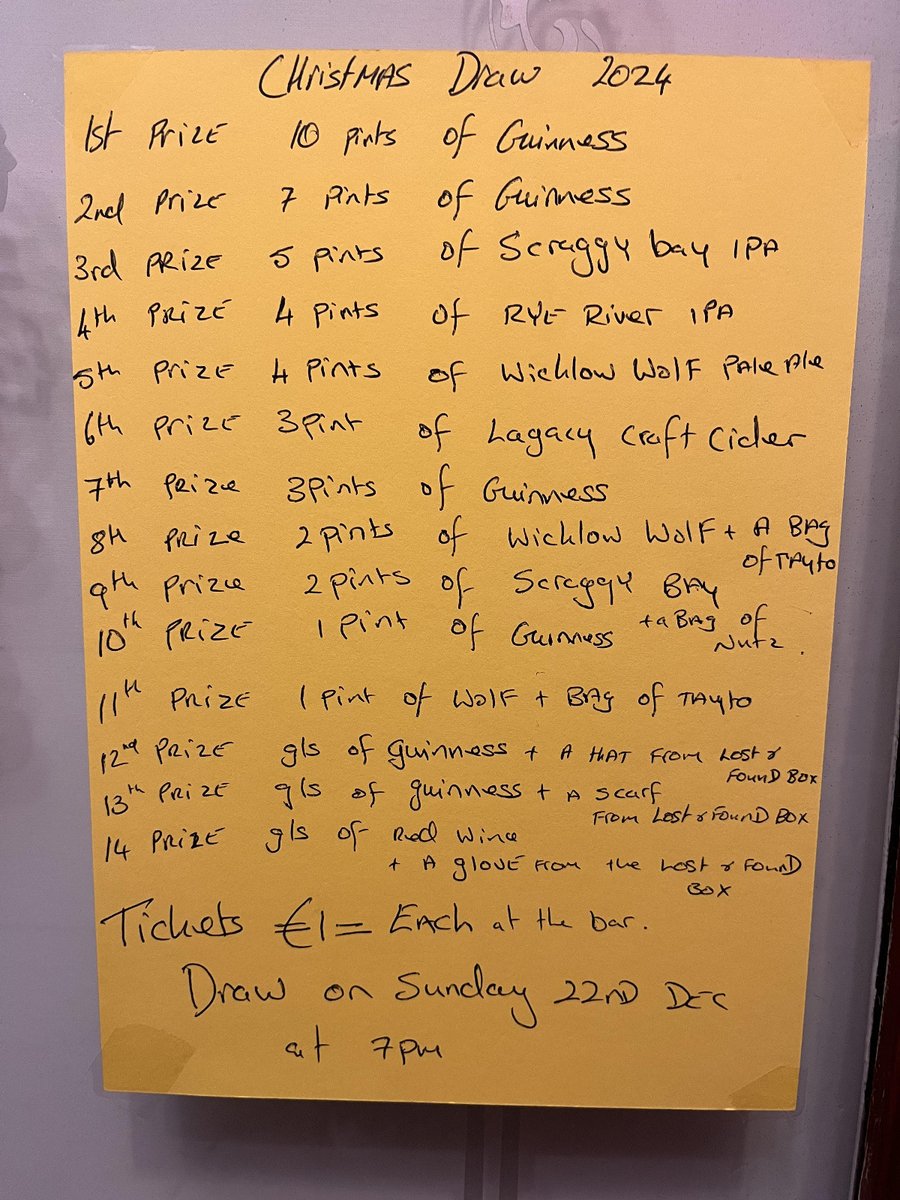 CHristMAS Draw 2024
1st PrizE 10 pints of Guinness
2nd PrizE 7 Pints of Guinness
3rd PRIZE 5 pints of Scraggy bay IPA
4th PRIZE 4 pints of RYE River IPA
5th PrizE 4 Pints of Wicklow Wolf Pale Ale
6th PrizE 3 pint of Lagacy craft cider
7th Prize 3 Pints of Guinness
8th PRize 2 pints of Wicklow Wolf + A BAg
of TAyto
9th Prize 2 pints of Scraggy BAy
10th PRIZE 1 pint of Guinness + a BAg of
Nutz.
11th PRIZE 1 pint of Wolf + BAg of TAyto
12nd PRIZE gls of Guinness + A HAT FROM Lost &
FOUND BOX
13th PRIZE gls of guinness + A Scarf
FROM Lost & FOUND BOX
14 PRIZE gls of Red Wine
+ A glove From the Lost & FOUND
BOX
Tickets €1= EAch at the bar.
Draw on Sunday 22ND DEC
at 7pm